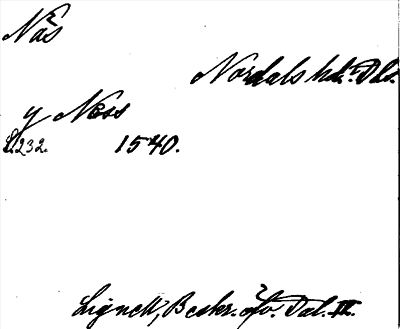 Näs
Nordals hd. Dls.
y Næss
S. 232. 1540.
Lignell, Beskr. öfv. Dal. II.